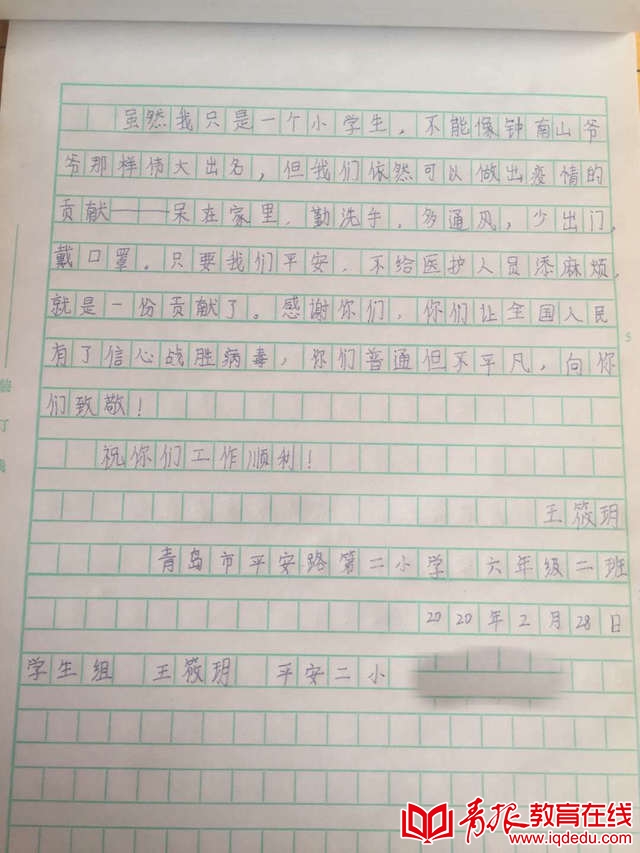 虽然我只是一个小学生，不能像钟南山爷
爷那样伟大出名，但我们依然可以做出疫情的
贡献——呆在家里、勤洗手、多通风，少出门、
戴口罩。只要我们平安、不给医护人员添麻烦，
就是一份贡献了。感谢你们，你们让全国人民
有了信心战胜病毒，你们普通但不平凡，向你
们致敬！
祝你们工作顺利！
王筱玥
青岛市平安路第二小学 六年级二班
2020年2月28日
学生组 王筱玥 平安二小
装
订
5
青报教育在线
www.iqdedu.com